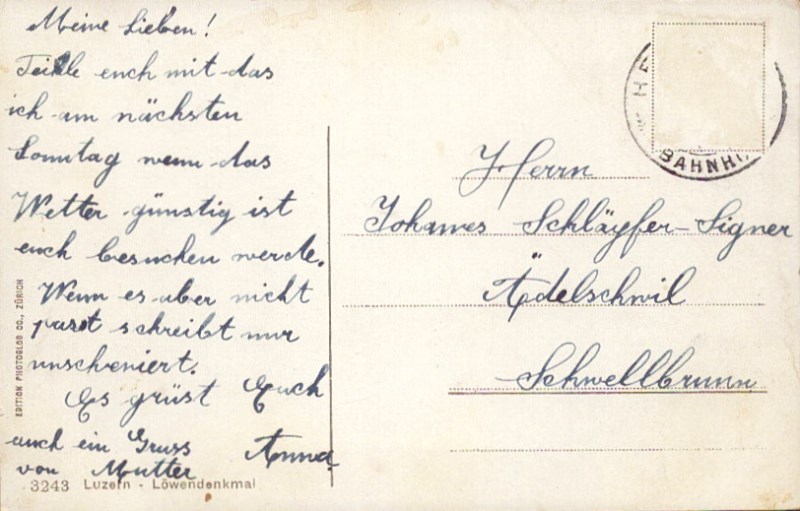 Meine Lieben!
Teille euch mit das
ich am nächsten
Sonntag wenn das
Wetter günstig ist
euch besuchen werde.
Wenn es aber nicht
passt schreibt nur
unscheniert.
Es grüst Euch
Anna
auch ein Gruss
von Mutter
3243 Luzern - Löwendenkmal
EDITION PHOTOGLOB CO., ZÜRICH
BAHNH
Herrn
Johannes Schläpfer-Signer
Ädelschwil
Schwellbrunn